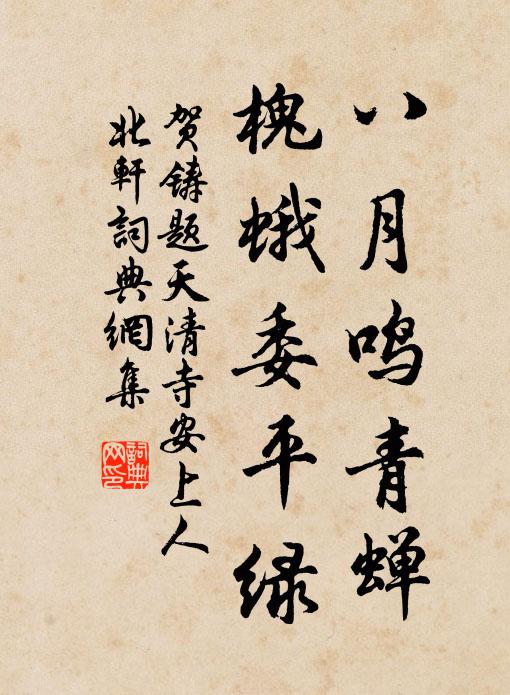 八月鸣青蝉
槐蛾委平绿
贺铸题天清寺安上人
北軒詞典網集
詞典网印